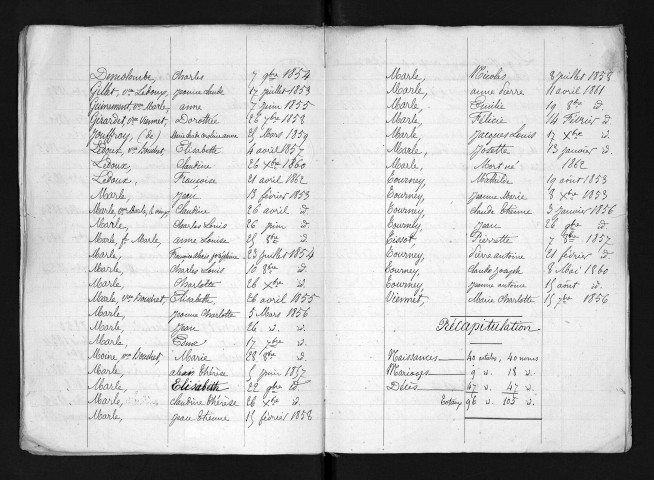 Demolombe, Charles 7 9bre 1854
Gillet, ve Ledoux, jeanne claude 17 juillet 1853
Guinement, ve Marle, anne 7 juin 1855
Girardet, ve Vannet, Dorothée 26 7bre 1858
Jouffroy, (de) 25 Mars 1859
Ledoux, ve Bouchet Elisabeth 4 avril 1857
Ledoux, Claudine 26 Xbre 1860
Ledoux, Francoise 21 avril 1862
Marle, Jean 13 février 1853
Marle, ve Marle, Claudine 26 avril d.
Marle, Charles Louis 26 juin d.
Marle, f. Marle, anne Louise 25 8bre d.
Marle, 23 juillet 1854
Marle, Charles Louis 10 8bre d.
Marle, Charlotte 26 Xbre d.
Marle, ve Bouchet, Elisabeth 26 avril 1855
Marle, Jeanne Charlotte 5 Mars 1856
Marle, Jean 26 d. d.
Marle, 17 7bre d.
Moine ve Bouchet Marie 28 8bre d.
Marle, Thérèse 5 juin 1857
Marle, Elisabeth 22 9bre d.
Marle, Claudine Thérèse 26 Xbre d.
Marle, Jean Etienne 15 février 1858
Marle, Nicolas 8 juillet 1858
Marle, anne Pierre 11 avril 1861
Marle, Emilie 19 8bre d.
Marle, Félicie 14 Février d.
Marle, Jacques Louis 17 Xbre d.
Marle, Josette 13 janvier d.
Marle, Mort né 1862
Tourney, Mathilde 19 août 1853
Tourney, Jeanne Marie 8 Xbre 1853
Tourney, Claude Etienne 3 janvier 1856
Tourney, Jean 26 9bre d.
Tissot, Pierrette 7 8bre 1857
Tourney, Pierre antoine 21 février d.
Tourney, Claude Joseph 8 Mai 1860
Tourney, Jeanne antoine 15 août d.
Viennet, Marie Charlotte 15 7bre 1856
Récapitulation
Naissances 40 actes, 40 noms
Mariages 9 d. 18 d.
Décès 47 d. 47 d.
Totaux 96 d. 105 d.